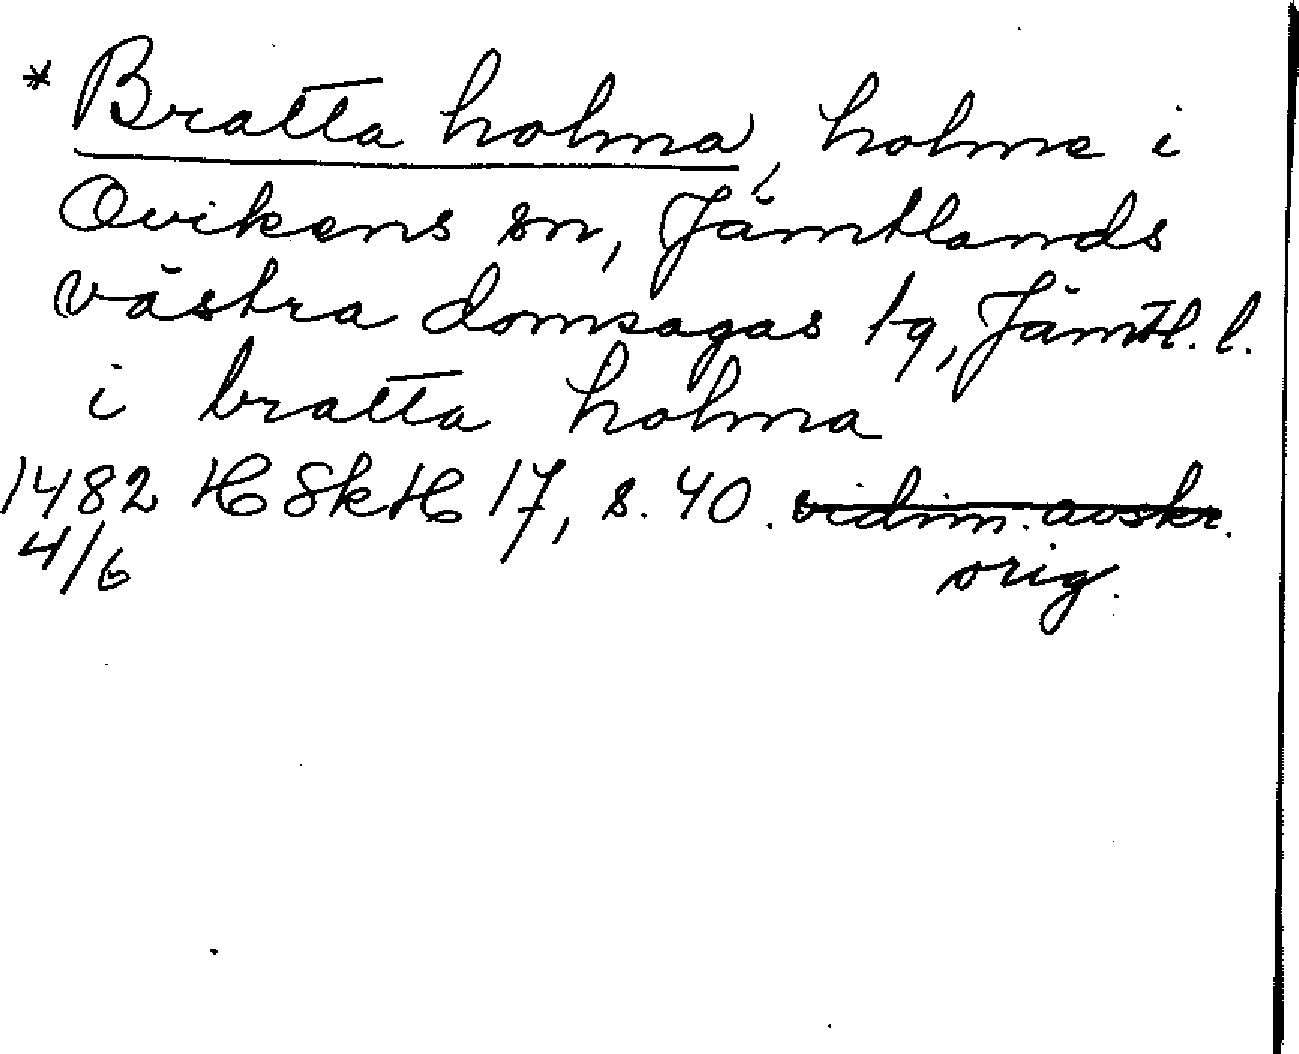 * Bratta holma, holme i
Ovikens sn, Jämtlands
västra domsagas tg, Jämtl. l.
i bratta holma
1482 HSkH 17, s. 40. vidim. avskr.
4/6 orig.